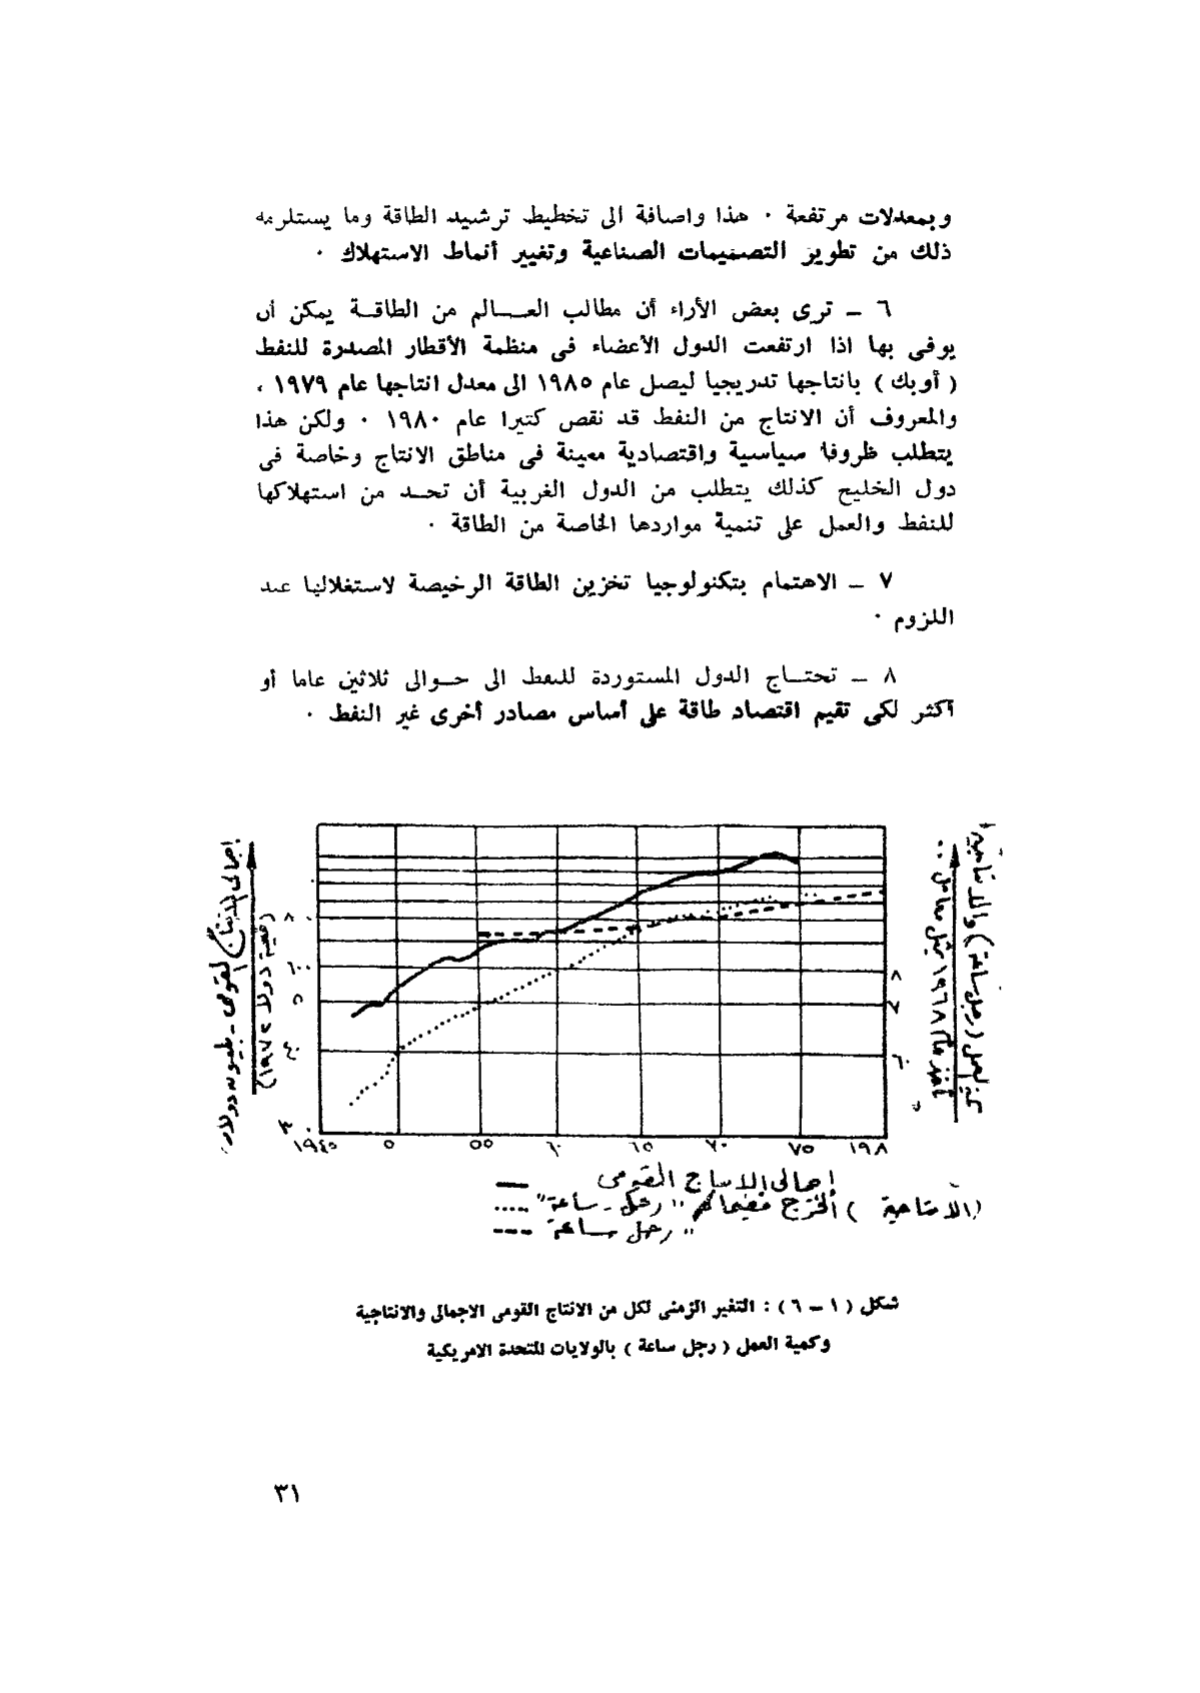 وبمعدلات مرتفعة ٠ هذا واضافة الى تخطيط ترشيد الطاقة وما يستلزمه
ذلك من تطوير التصميمات الصناعية وتغيير أنماط الاستهلاك ٠
٦ ــ ترى بعض الأراء أن مطالب العــالم من الطاقــة يمكن أن
يوفى بها اذا ارتفعت الدول الأعضاء فى منظمة الأقطار المصدرة للنفط
( أوبك ) بانتاجها تدريجيا ليصل عام ١٩٨٥ الى معدل انتاجها عام ١٩٧٩ ،
والمعروف أن الانتاج من النفط قد نقص كثيرا عام ١٩٨٠ ٠ ولكن هذا
يتطلب ظروفا سياسية واقتصادية معينة فى مناطق الانتاج وخاصة فى
دول الخليج كذلك يتطلب من الدول الغربية أن تحــد من استهلاكها
للنفط والعمل على تنمية مواردها الخاصة من الطاقة ٠
٧ ــ الاهتمام بتكنولوجيا تخزين الطاقة الرخيصة لاستغلالها عند
اللزوم ٠
٨ ــ تحتــاج الدول المستوردة للنفط الى حــوالى ثلاثين عاما أو
أكثر لكى تقيم اقتصاد طاقة على أساس مصادر أخرى غير النفط ٠
إجمالى الإنتاج القومى - بليون دولار
(قيمة دولار ١٩٧٢)
كمية العمل (رجل ساعة) والانتاجية
٨
٧
١٩٤٥ ٥٠ ٥٥ ٦٠ ٦٥ ٧٠ ٧٥ ١٩٨٠
إجمالى الإنتاج القومى
(الانتاجية) الخرج مقسما " رجل - ساعة "
" رجل ساعة "
شكل ( ١ ــ ٦ ) : التغير الزمنى لكل من الانتاج القومى الاجمالى والانتاجية
وكمية العمل ( رجل ساعة ) بالولايات المتحدة الامريكية
٣١